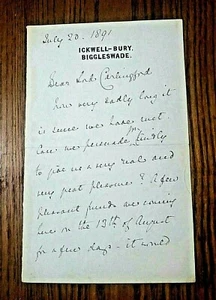 July 20. 1891
ICKWELL-BURY,
BIGGLESWADE.
Dear Lord Carlingford
how very sadly long it
is since we have met.
Can we persuade you kindly
to give us a very real and
very great pleasure? A few
pleasant friends are coming
here on the 13th of August
for a few days - It would